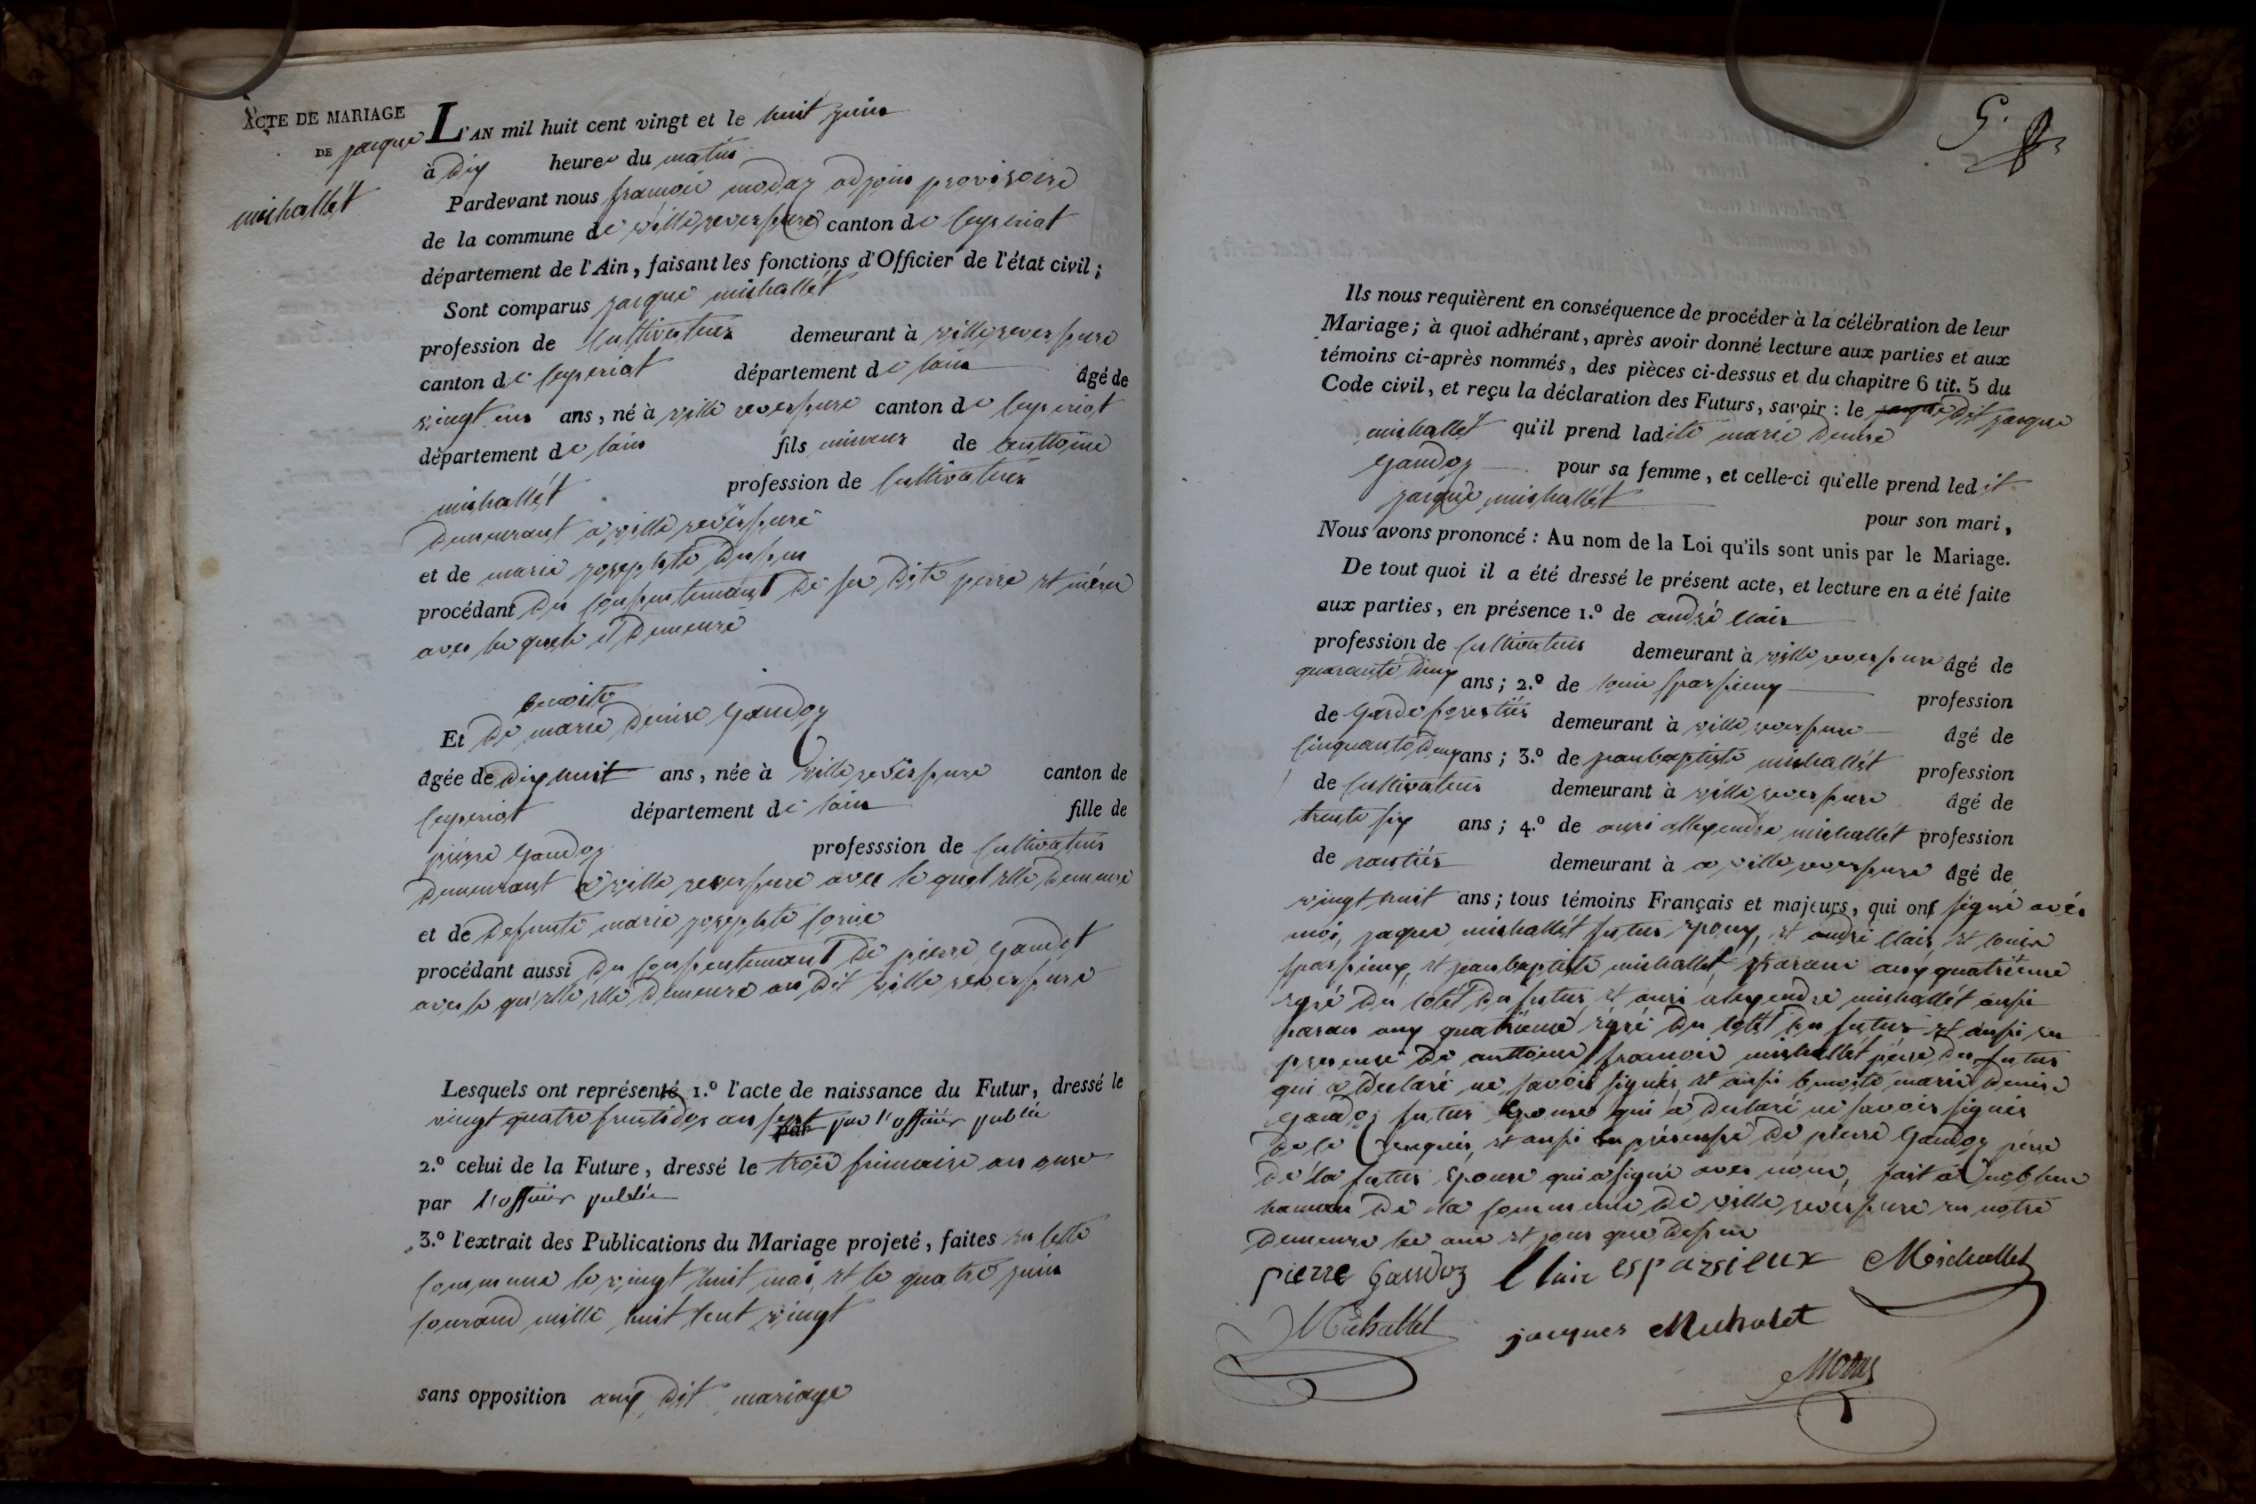 ACTE DE MARIAGE
DE jacque
mishallét
L'AN mil huit cent vingt et le huit juin
à dix heures du matin
Pardevant nous framoié moday adjoin provisoire
de la commune de ville reversure canton de ceyseriat
département de l'Ain, faisant les fonctions d'Officier de l'état civil;
Sont comparus jacque mishallét
profession de cultivateur demeurant à ville reversure
canton de ceyseriat département de lain âgé de
vingt un ans, né à ville reversure canton de ceyseriat
département de lain fils mineur de anttoine
mishallét profession de cultivateur
demeurant a ville reversure
et de marie josephte
procédant du consentement de se dite peire et mére
avec le quele il demeure
benoite
Et de marie denise gaudoz
âgée de dix huit ans, née à ville reversure canton de
ceyseriat département de lain fille de
pierre gaudoz professsion de cultivateur
demeurant a ville reversure avec le quel elle demeure
et de defunte marie josephte
procédant aussi du consentement de pierre gaudot
avec le qu'elle elle demeure au dit ville reversure
Lesquels ont représenté 1.º l'acte de naissance du Futur, dressé le
vingt quatre fructidor an sept par l'offiiér publie
2.º celui de la Future, dressé le troie frimaire an onse
par l'offiiér publie
3.º l'extrait des Publications du Mariage projeté, faites en cette
commune le vingt huit mai et le quatre juin
courand mille huit cent vingt
sans opposition aux dit mariage
Ils nous requièrent en conséquence de procéder à la célébration de leur
Mariage; à quoi adhérant, après avoir donné lecture aux parties et aux
témoins ci-après nommés, des pièces ci-dessus et du chapitre 6 tit. 5 du
Code civil, et reçu la déclaration des Futurs, savoir: le dit jacque
mishallet qu'il prend ladite marie denise
gaudoz pour sa femme, et celle-ci qu'elle prend ledit
jacque mishallét pour son mari,
Nous avons prononcé: Au nom de la Loi qu'ils sont unis par le Mariage.
De tout quoi il a été dressé le présent acte, et lecture en a été faite
aux parties, en présence 1.º de andré clair
profession de cultivateur demeurant à ville reversure âgé de
quarante deux ans; 2.º de louie sparsieux profession
de garde forestiér demeurant à ville reversure âgé de
cinquante deux ans; 3.º de jeanbaptiste mishallét profession
de cultivateur demeurant à ville reversure âgé de
trente six ans; 4.º de anri allexendre mishallét profession
de rantiér demeurant à a ville reversure âgé de
vingt huit ans; tous témoins Français et majeurs, qui ont signé avéc
moi, jaque mishallét futur epoux, et andré clair et louie
sparsieux, et jeanbaptiste mishallet parane aux quatriéme
egré du cotét du futur, et anri alexendre mishallét ausi
paran aux quatriéme égré du cotét du futur et ausi en
presense de anttoine framoié mishallét pére du futur
qui a declaré ne savoir signér et ausi benoite marie denise
gaudoz futur epouse qui a declaré ne savoir signér
de ce enquis, et ausi en présense de pierre gaudoz pére
de la futur epouse qui a signé avec nous, fait a noblens
hamau de la commune de ville reversure en notre
demeure les ans et jour que desus
pierre Gaudoz Clair esparsieux Michallet
Michallet jacques Michalet
Moday